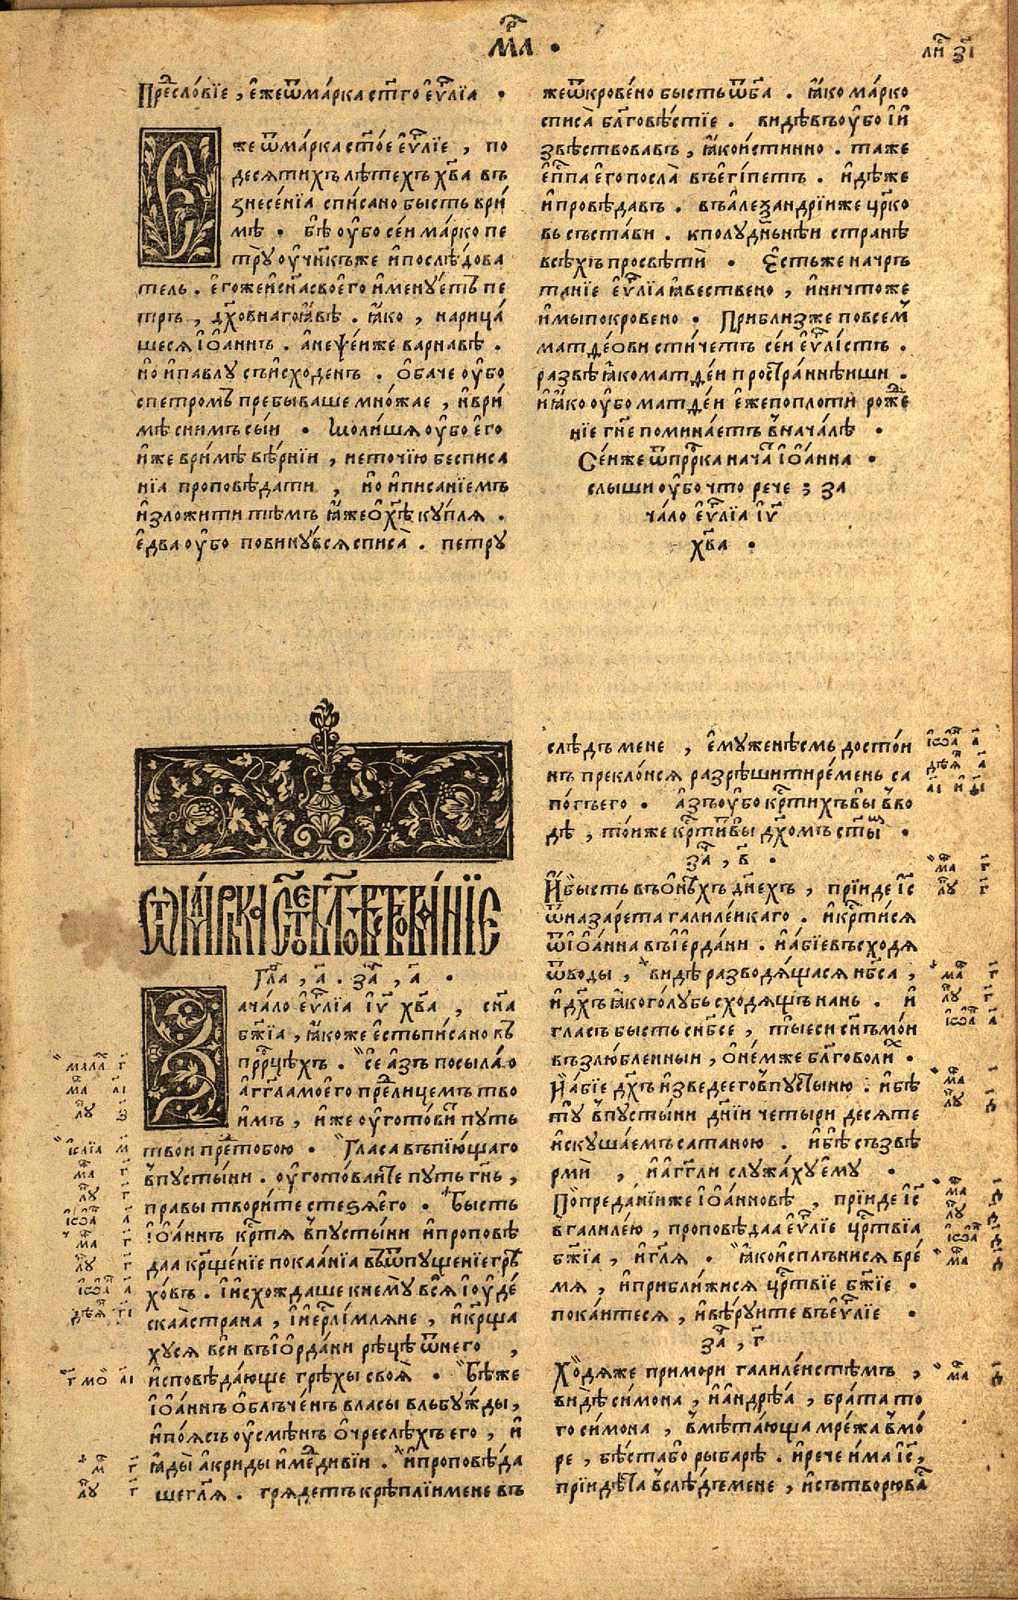 МР҃А •
ли҃ ѕ҃і
Пре́дсло́вїе , є҆́же ѿ ма́рка ст҃го є҆ѵⷢ҇лїа •
Є
же ѿ ма́рка ст҃о́е є҆ѵⷢ҇лїе , по
десѧти́хъ лѣ́техъ хв҃а въ
знесе́нїа спи́сано бысть в ри́
мѣ • бѣ̀ оу҆́бо се́и ма́рко пе
тру̀ оу҆чн҃къ же и҆ послѣ́дова
тель . є҆гоже и҆ сн҃а своего̀ и҆менꙋ́етъ пе
тръ , дх҃о́внаго ꙗ҆́вѣ . ꙗ҆́ко , нарица́
шесѧ і҆ѡ҆а́ннъ . а҆неѱе́и же варна́вѣ .
но̀ и҆ па́влу съи́сходенъ . Ѻ҆ба́че оу҆́бо
с петро́мъ пребыва́ше мно́жае , и҆ в ри́
мѣ с ни́мъ сы́и • Моли́шѧ оу҆́бо є҆го̀
и҆́же в ри́мѣ вѣ́рнїи , не то́чїю бес писа
нїа проповѣ́дати , но̀ и҆ писанїемъ
и҆зложи́ти тѣ́мъ ꙗ҆́же ѻ҆ хѣ҃ ку́плѧ .
є҆два̀ оу҆́бо повинꙋ́всѧ списа̀ . петру
же ѿкрове́но бысть ѿ бг҃а . ꙗ҆́ко ма́рко
списа̀ бл҃говѣ́стїе . ви́дѣвъ оу҆́бо и҆ и҆
звѣ́ствовавъ , ꙗ҆́ко и҆́стинно . та́же
є҆пⷭ҇па є҆го̀ посла̀ въ є҆гі́петъ . и҆дѣ́же
и҆ проповѣ́давъ . въ а҆леѯандрі́и же цр҃ко
вь съста́ви . к полу́дн҃ьнѣи странѣ
всѣ́хъ просвѣтѝ • Є҆́сть же начръ
танїе є҆ѵⷢ҇лїа ꙗ҆́вествено , и҆ ничто́же
и҆мы̀ покрове́но • Прибли́зже по все́мⷹ
матѳе́ови сти́четъ се́и є҆ѵⷢ҇лі́стъ .
ра́звѣ ꙗ҆́ко матѳе́и простра́ннѣиши .
и҆ ꙗ҆́ко оу҆́бо матѳе́и є҆́же по плоти рожⷣе
нїе гн҃е помина́етъ в нача́лѣ •
Се́и же ѿ прⷪ҇рка нача̀ і҆ѡ҆а́нна •
слы́ши оу҆́бо что̀ рече ; За
ча́ло є҆ѵⷢ҇лїа і҆у҃
хв҃а •
Ѿ МА́РКА СТ҃О́Е БЛ҃ГОВѢСТВОВА́НЇЕ
Гла҃ , а҃ . за҃ , а҃ •
З
ача́ло є҆ѵⷢ҇лїа і҆у҃ хв҃а , сн҃а
бж҃їа , ꙗ҆́коже є҆́сть пи́сано въ
прⷪ҇рцѣхъ . сѐ а҆́зъ посыла́ю
а҆́гг҃ла моего̀ преⷣ лице́мъ тво
и҆мъ , и҆́же оу҆гото́витъ путь
тво́и преⷣ тобо́ю • Гла́съ въпїю́щаго
в пусты́ни . оу҆гото́ваите пу́ть гн҃ь ,
пра́вы твори́те стеѕѧ̀ є҆го̀ • Бы́сть
і҆ѡ҆а́ннъ крⷭ҇тѧ в пусты́ни и҆ проповѣ́
даа кр҃ще́нїе покаа́нїа въ ѿпуще́нїе грѣ
хо́въ . и҆ и҆схожда́ше к нему̀ всѧ̀ і҆ѹде́
скаа страна̀ , и҆ і҆е҆рⷭ҇ли́млѧне , и҆ кр҃ща
хусѧ всѝ въ і҆ѻ҆рда́ни рѣцѣ̀ ѿ него̀ ,
и҆сповѣ́дающе грѣхы̀ своѧ̀ • Бѣ́ же
і҆ѡ҆а́ннъ ѻ҆блъче́нъ власы̀ вельбу́жды ,
и҆ по́ѧсъ оу҆смѣ́нъ ѻ҆ чре́слѣхъ его̀ , и҆
ꙗ҆ды̀ а҆кри́ды и҆ ме́дъ ди́вїи . и҆ проповѣ́да
ше гл҃ѧ . грѧде́тъ крѣ́плїи мене въ
слѣ́дъ мене , є҆му́же нѣ́смь досто́и
нъ прекло́нсѧ разрѣши́ти реме́нь са
по́гъ его̀ . а҆́зъ оу҆́бо крⷭ҇ти́хъ вы̀ в во
дѣ̀ , то́и же крⷭ҇ти́тъ вы̀ дх҃омъ ст҃ы́мъ •
за҃ , в҃ •
И҆ бы́сть въ о҆нѣ́хъ дн҃ехъ , прїи́де і҆с҃
ѿ назаре́та галиле́искаго . и҆ крⷭ҇ти́сѧ
ѿ і҆ѡ҆а́нна въ і҆е҆рда́ни . и҆ а҆́бїе въсходѧ
ѿ воды , видѣ̀ разводѧ́щасѧ нб҃са̀ ,
и҆ дх҃ъ ꙗ҆́ко го́лубь сходѧ́щъ на нь . и҆
гла́съ бысть с нб҃се , ты̀ еси сн҃ъ мо́и
възлю́бленныи , ѻ҆ не́мже бл҃говоли́хъ •
И҆ а҆́бїе дх҃ъ и҆зведе́ его в пусты́ню . и҆ бѣ̀
ту̀ в пусты́ни дн҃їи четы́ри десѧте
и҆скуша́емъ сатано́ю . и҆ бѣ̀ съ звѣ
рмѝ , и҆ а҆́гг҃ли служа́ху є҆му •
По преда́нїи же і҆ѡ҆а́нновѣ , прїи́де і҆с҃
в галиле́ю , проповѣ́даа є҆ѵⷢ҇лїе црⷭ҇твїа
бж҃їа , и҆ гл҃ѧ • ꙗ҆́ко и҆сплъ́нисѧ вре́
мѧ , и҆ прибли́жисѧ црⷭ҇твїе бж҃їе •
пока́итесѧ , и҆ вѣ́руите въ є҆ѵⷢ҇лїе •
за҃ , г҃
Ходѧ́ же при мо́ри галиле́истѣмъ ,
ви́дѣ си́мона , и҆ а҆ндре́а , бра́та то
го̀ си́мона , вмѣта́юща мре́жа в мо́
ре , бѣ́ста бо рыбарѣ̀ . и҆ рече има і҆с҃ ,
прїидѣ́та в слѣ́дъ мене , и҆ сътворю̀ ва